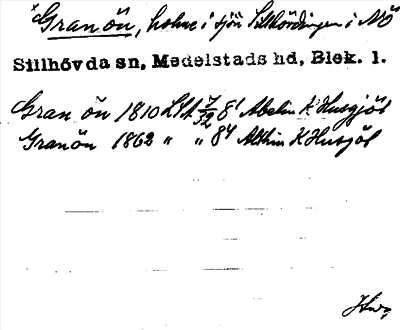 ×Granön, holme i sjön Sillhövdingen i NÖ
Sillhövda sn, Medelstads hd, Blek. l.
Gran ön 1810 LSA 7/32 8¹ Abelin K Husgjöl
Granön 1862 " " 8⁴ Althin K Husjöl